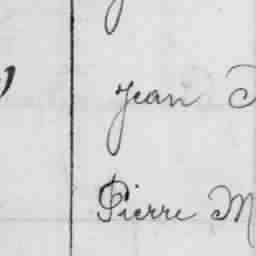 Jean
Pierre M